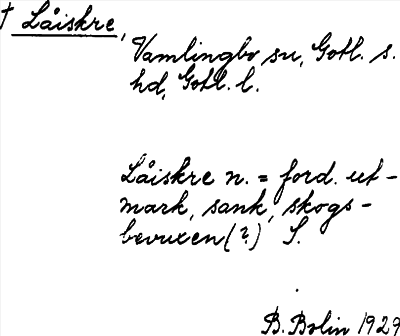 † Låiskre,
Vamlingbo sn, Gotl. s.
hd, Gotl. l.
Låiskre n. = ford. ut-
mark, sank, skogs-
bevuxen (?) S.
B. Bolin 1929